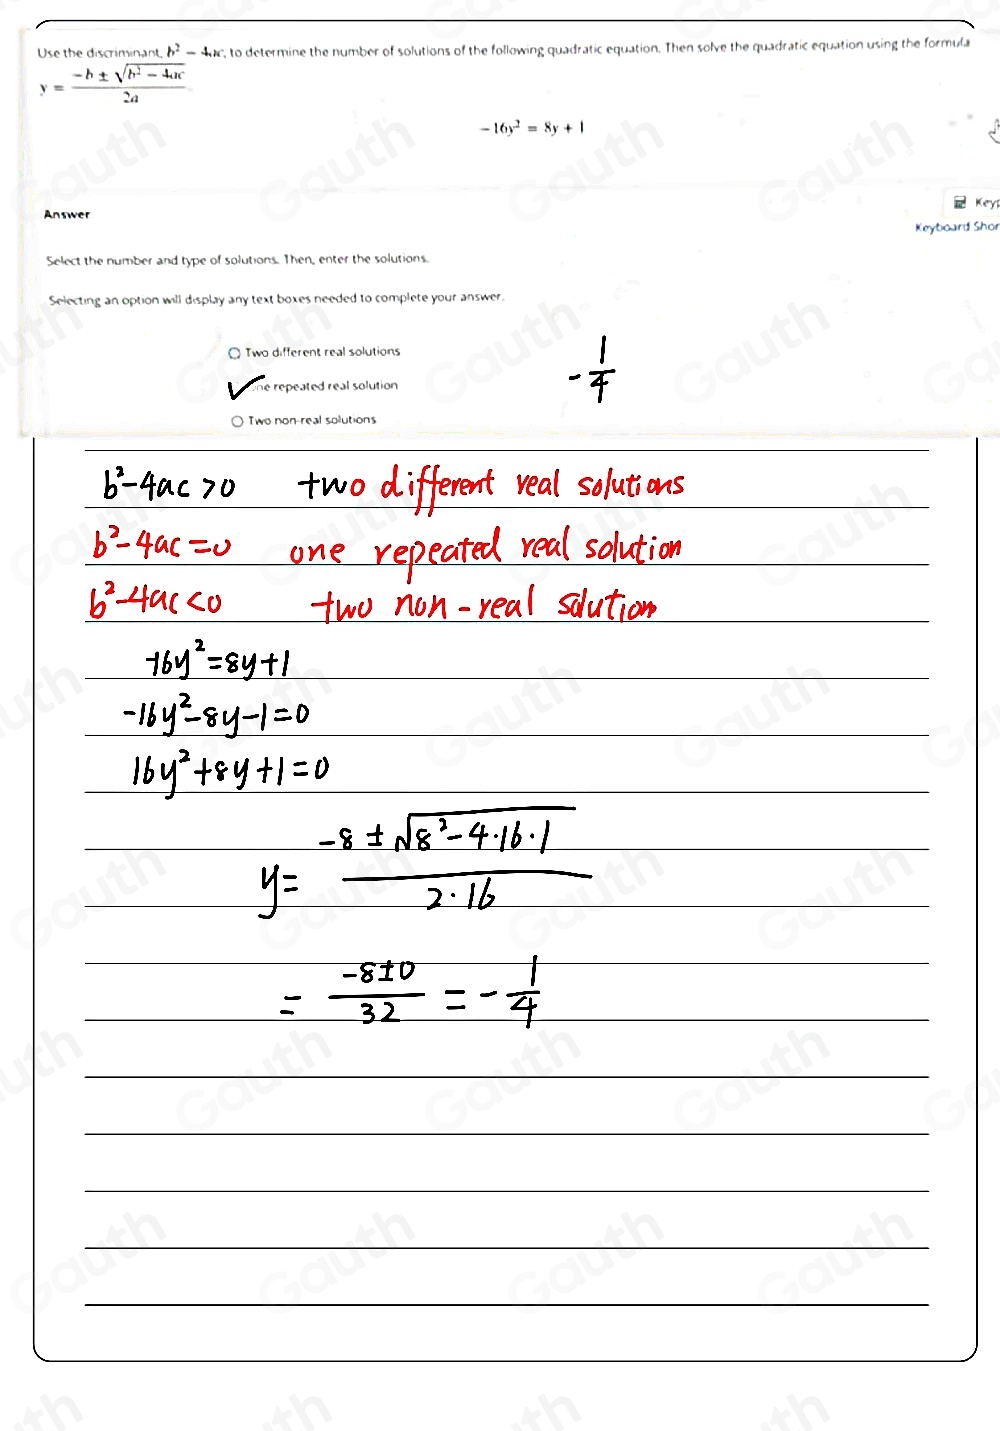 Use the discriminant, b² − 4ac, to determine the number of solutions of the following quadratic equation. Then solve the quadratic equation using the formula
y = (-b ± √(b² − 4ac)) / 2a
−16y² = 8y + 1
Answer
Keyp
Keyboard Shor
Select the number and type of solutions. Then, enter the solutions.
Selecting an option will display any text boxes needed to complete your answer.
Two different real solutions
ne repeated real solution
-1/4
Two non-real solutions
b²-4ac>0 two different real solutions
b²-4ac=0 one repeated real solution
b²-4ac<0 two non-real solution
-16y²=8y+1
-16y²-8y-1=0
16y²+8y+1=0
y= (-8±√(8²-4·16·1)) / 2·16
= (-8±0)/32 = -1/4
Gauth